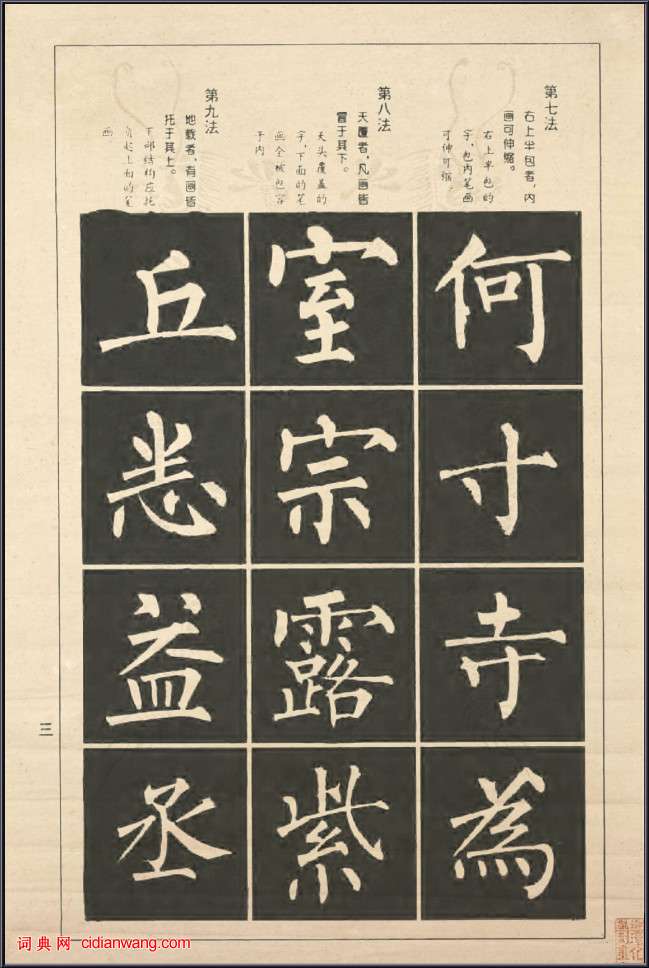 第七法
右上半包者，内
画可伸缩。
右上半包的
字，包内笔画
可伸可缩。
何
寸
寺
為
第八法
天覆者，凡画皆
冒于其下。
天头覆盖的
字，下面的笔
画全被包容
于内
室
宗
露
紫
第九法
地载者，有画皆
托于其上。
下部结构应托
负起上面的笔
画
丘
益
丞
三
词典网 - cidianwang.com